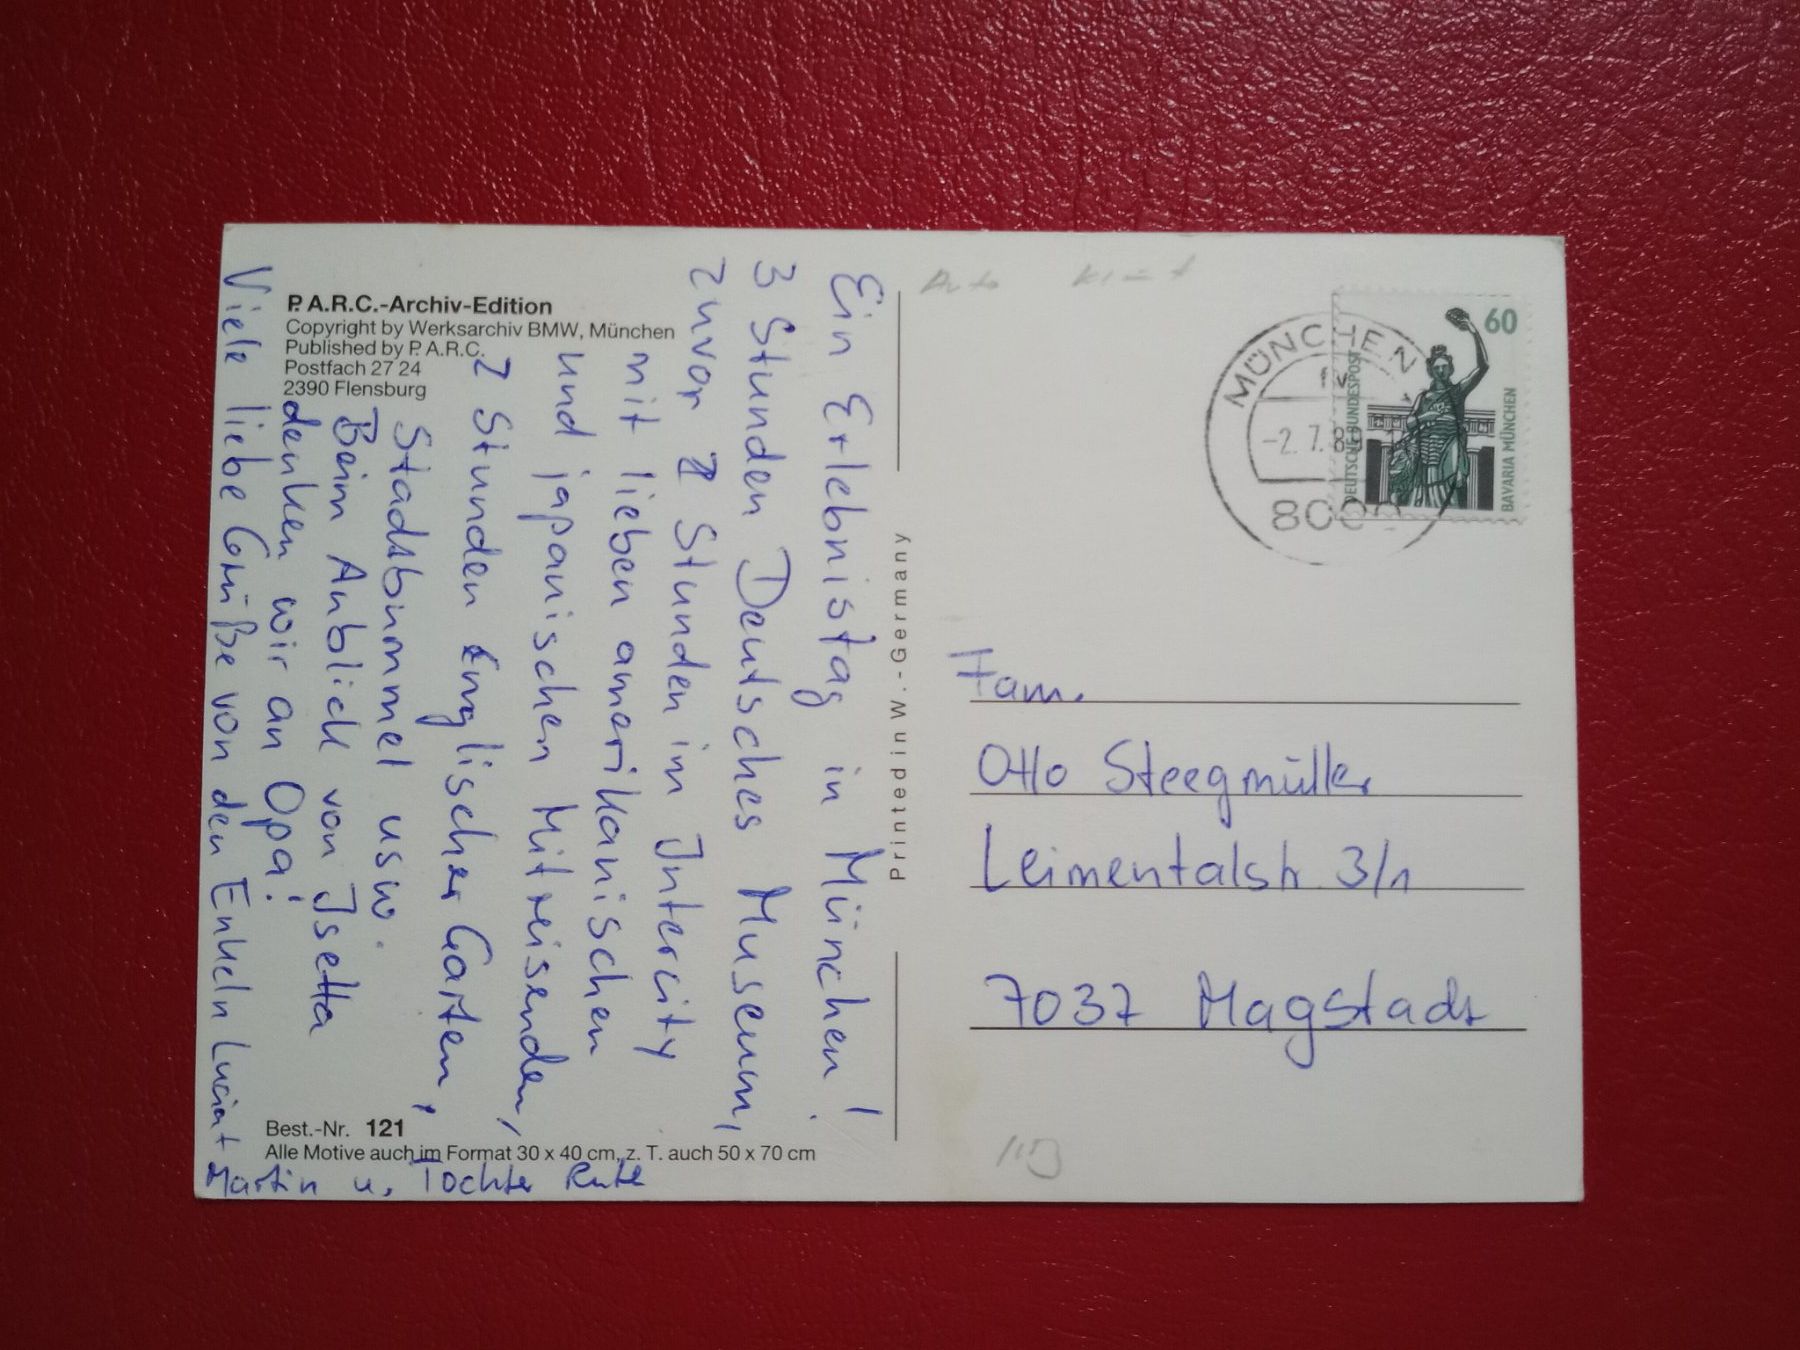 P.A.R.C.-Archiv-Edition
Copyright by Werksarchiv BMW, München
Published by P.A.R.C.
Postfach 27 24
2390 Flensburg
Ein Erlebnistag in München!
3 Stunden Deutsches Museum,
zuvor 2 Stunden im Intercity
mit lieben amerikanischen
und japanischen Mitreisenden,
2 Stunden Englischer Garten,
Stadtbummel usw.
Beim Anblick von Isetta
denken wir an Opa!
Viele liebe Grüße von den Enkeln
Martin u. Tochter
Best.-Nr. 121
Alle Motive auch im Format 30 x 40 cm, z. T. auch 50 x 70 cm
Printed in W.-Germany
Auto
MÜNCHEN
fv
-2.7.8
800
60
DEUTSCHE BUNDESPOST
BAVARIA MÜNCHEN
Fam.
Otto Steegmüller
Leimentalstr 3/1
7037 Magstadt